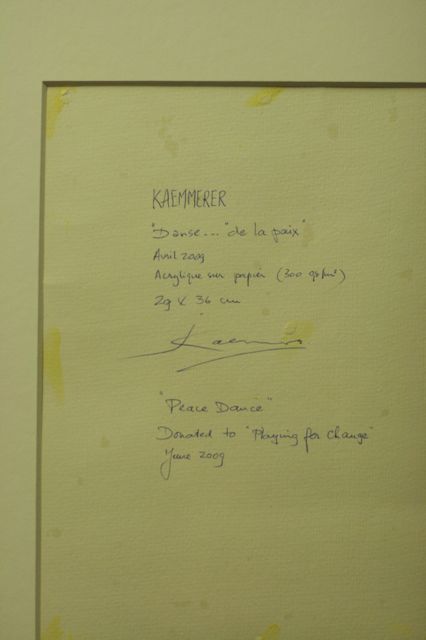 KAEMMERER
"Danse... "de la paix"
Avril 2009
Acrylique sur papier (300 gs/m²)
29 x 36 cm
Kaemmerer
"Peace Dance"
Donated to "Playing for Change"
June 2009